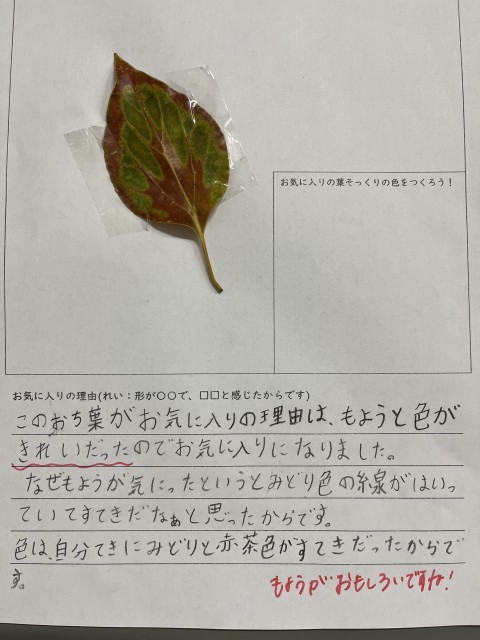 お気に入りの葉そっくりの色をつくろう！
お気に入りの理由(れい：形が〇〇で、□□と感じたからです)
このおち葉がお気に入りの理由は、もようと色が
きれいだったのでお気に入りになりました。
なぜもようが気にったというとみどり色の線がはいっ
ていてすてきだなぁと思ったからです。
色は、自分てきにみどりと赤茶色がすてきだったからで
す。
もようがおもしろいですね！